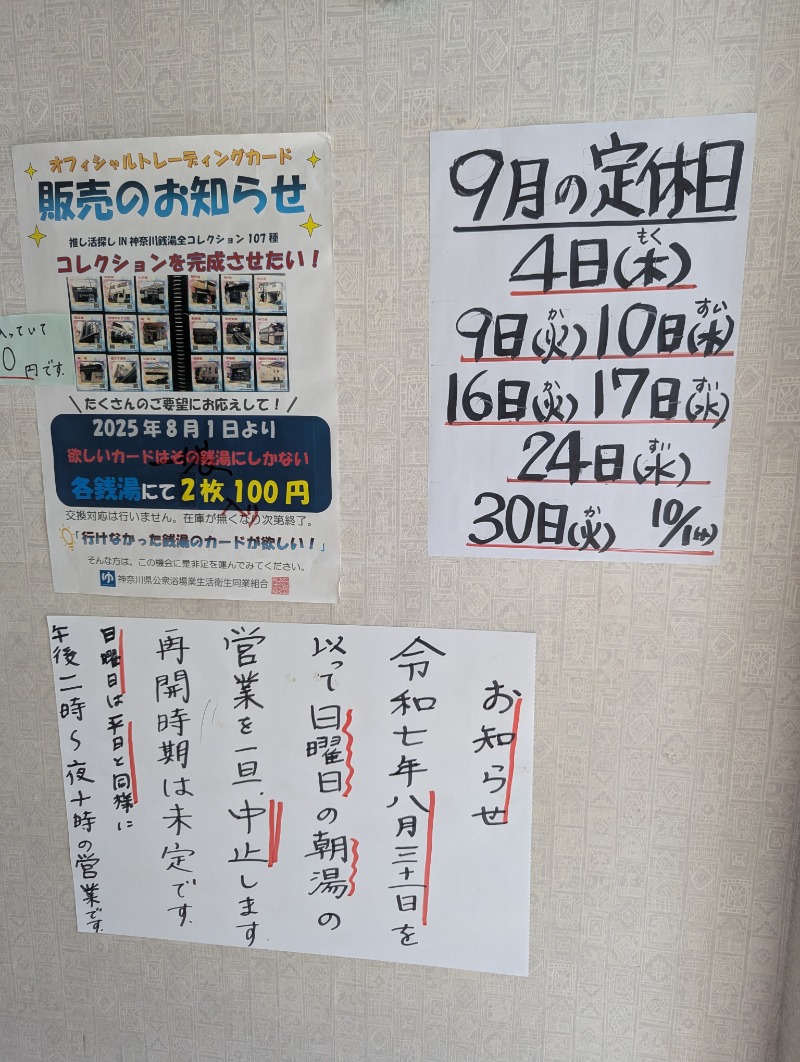 オフィシャルトレーディングカード
販売のお知らせ
推し活探し IN 神奈川銭湯全コレクション 107 種
コレクションを完成させたい！
\たくさんのご要望にお応えして！/
2025 年 8 月 1 日より
欲しいカードはその銭湯にしかない
各銭湯にて 2 枚 100 円
入り
交換対応は行いません。在庫が無くなり次第終了。
「行けなかった銭湯のカードが欲しい！」
そんな方は、この機会に是非足を運んでみてください。
ゆ 神奈川県公衆浴場業生活衛生同業組合
入っていて
0円です。
9月の定休日
もく
4日(木)
か すい
9日(火) 10日(水)
か すい
16日(火) 17日(水)
すい
24日(水)
か
30日(火) 10/1(水)
お知らせ
令和七年八月三十一日を
以って日曜日の朝湯の
営業を一旦、中止します。
再開時期は未定です。
日曜日は平日と同様に
午後二時～夜十時の営業です。